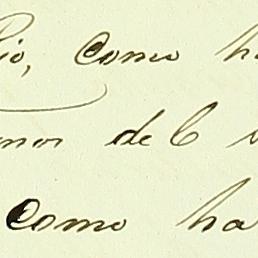 io, como ha
nos del
como ha